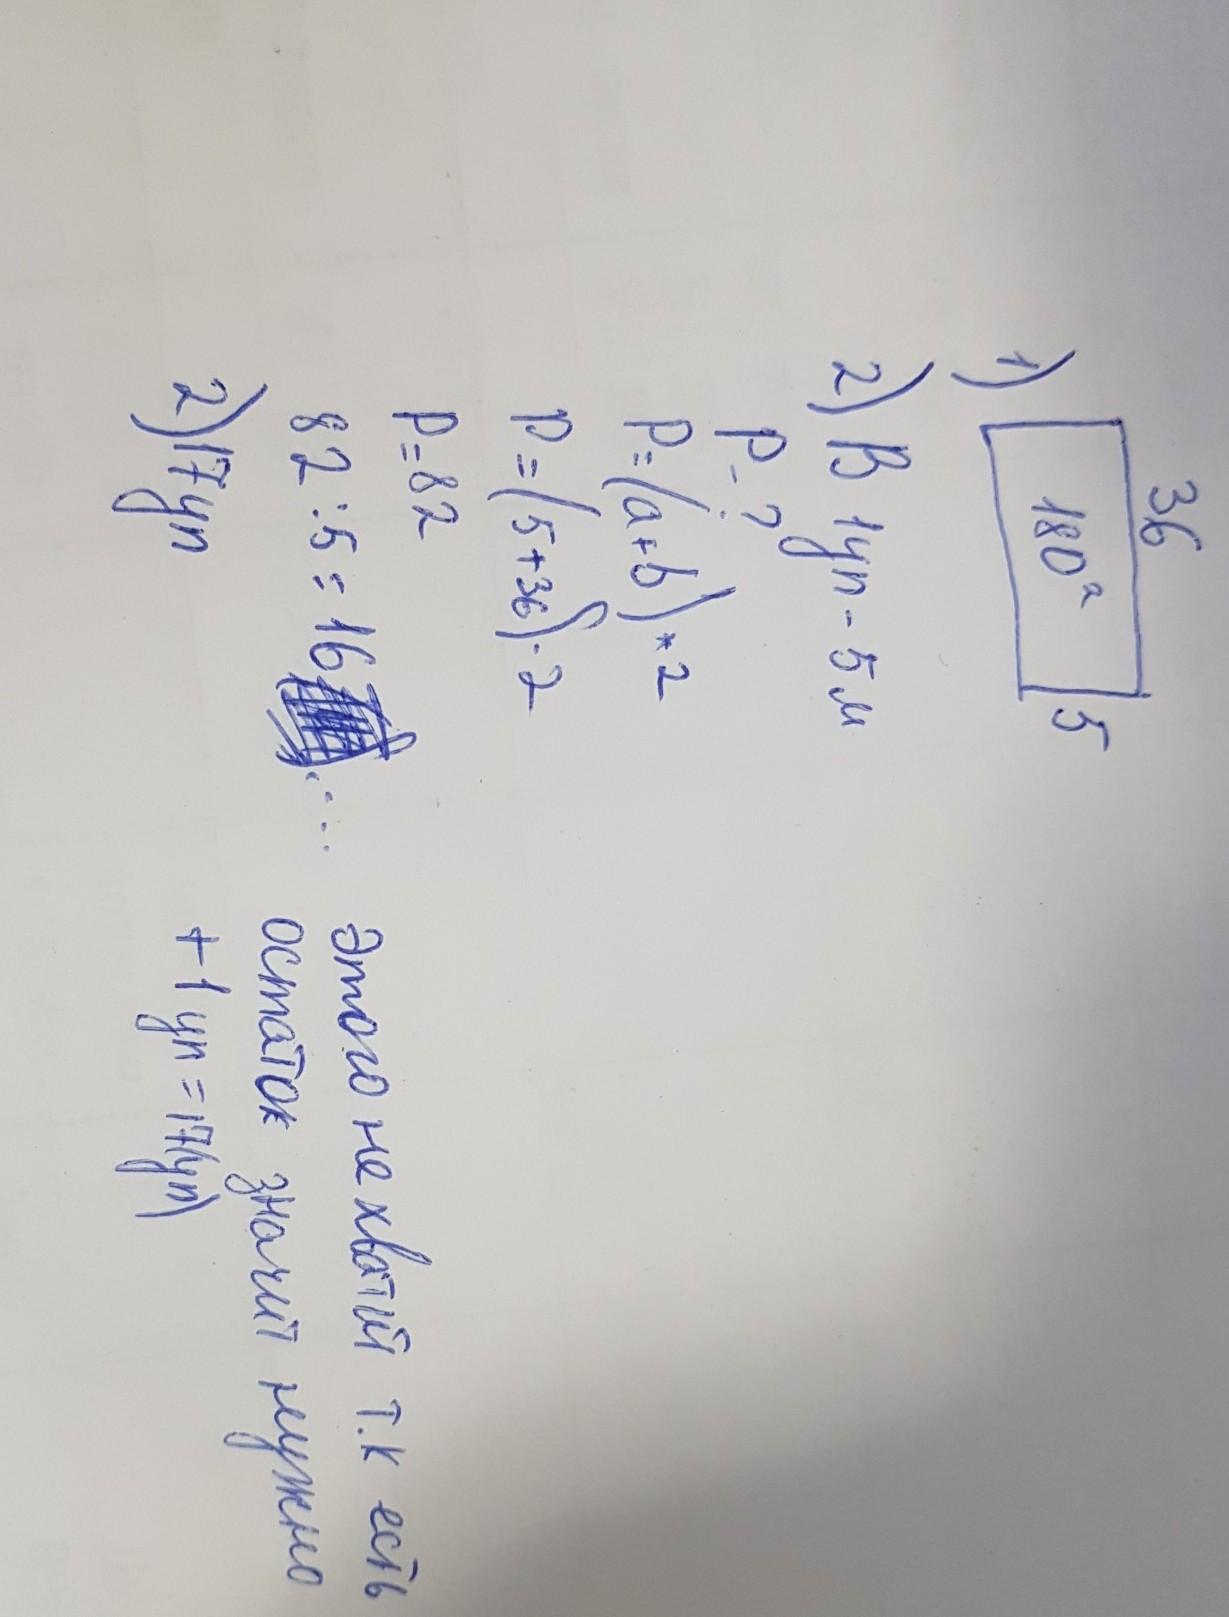 36
1) 180² 5
2) В 1уп - 5м
P - ?
P=(a+b)*2
P=(5+36)·2
P=82
82:5=16... Этого не хватит т.к есть
остаток значит нужно
+1уп=17уп)
2)17уп